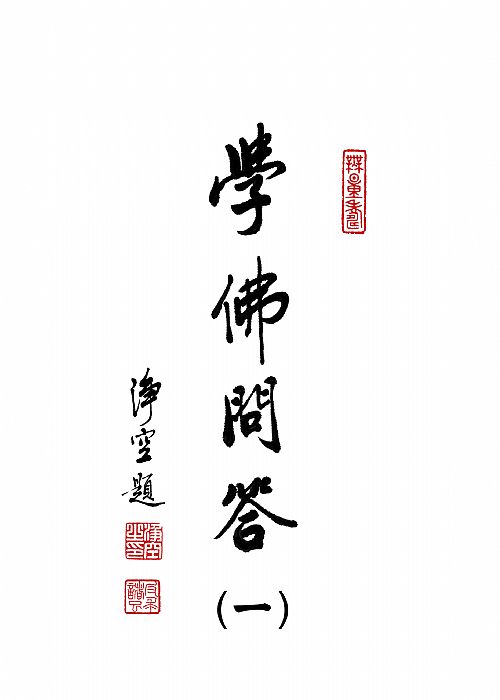 學佛問答
(一)
淨空題